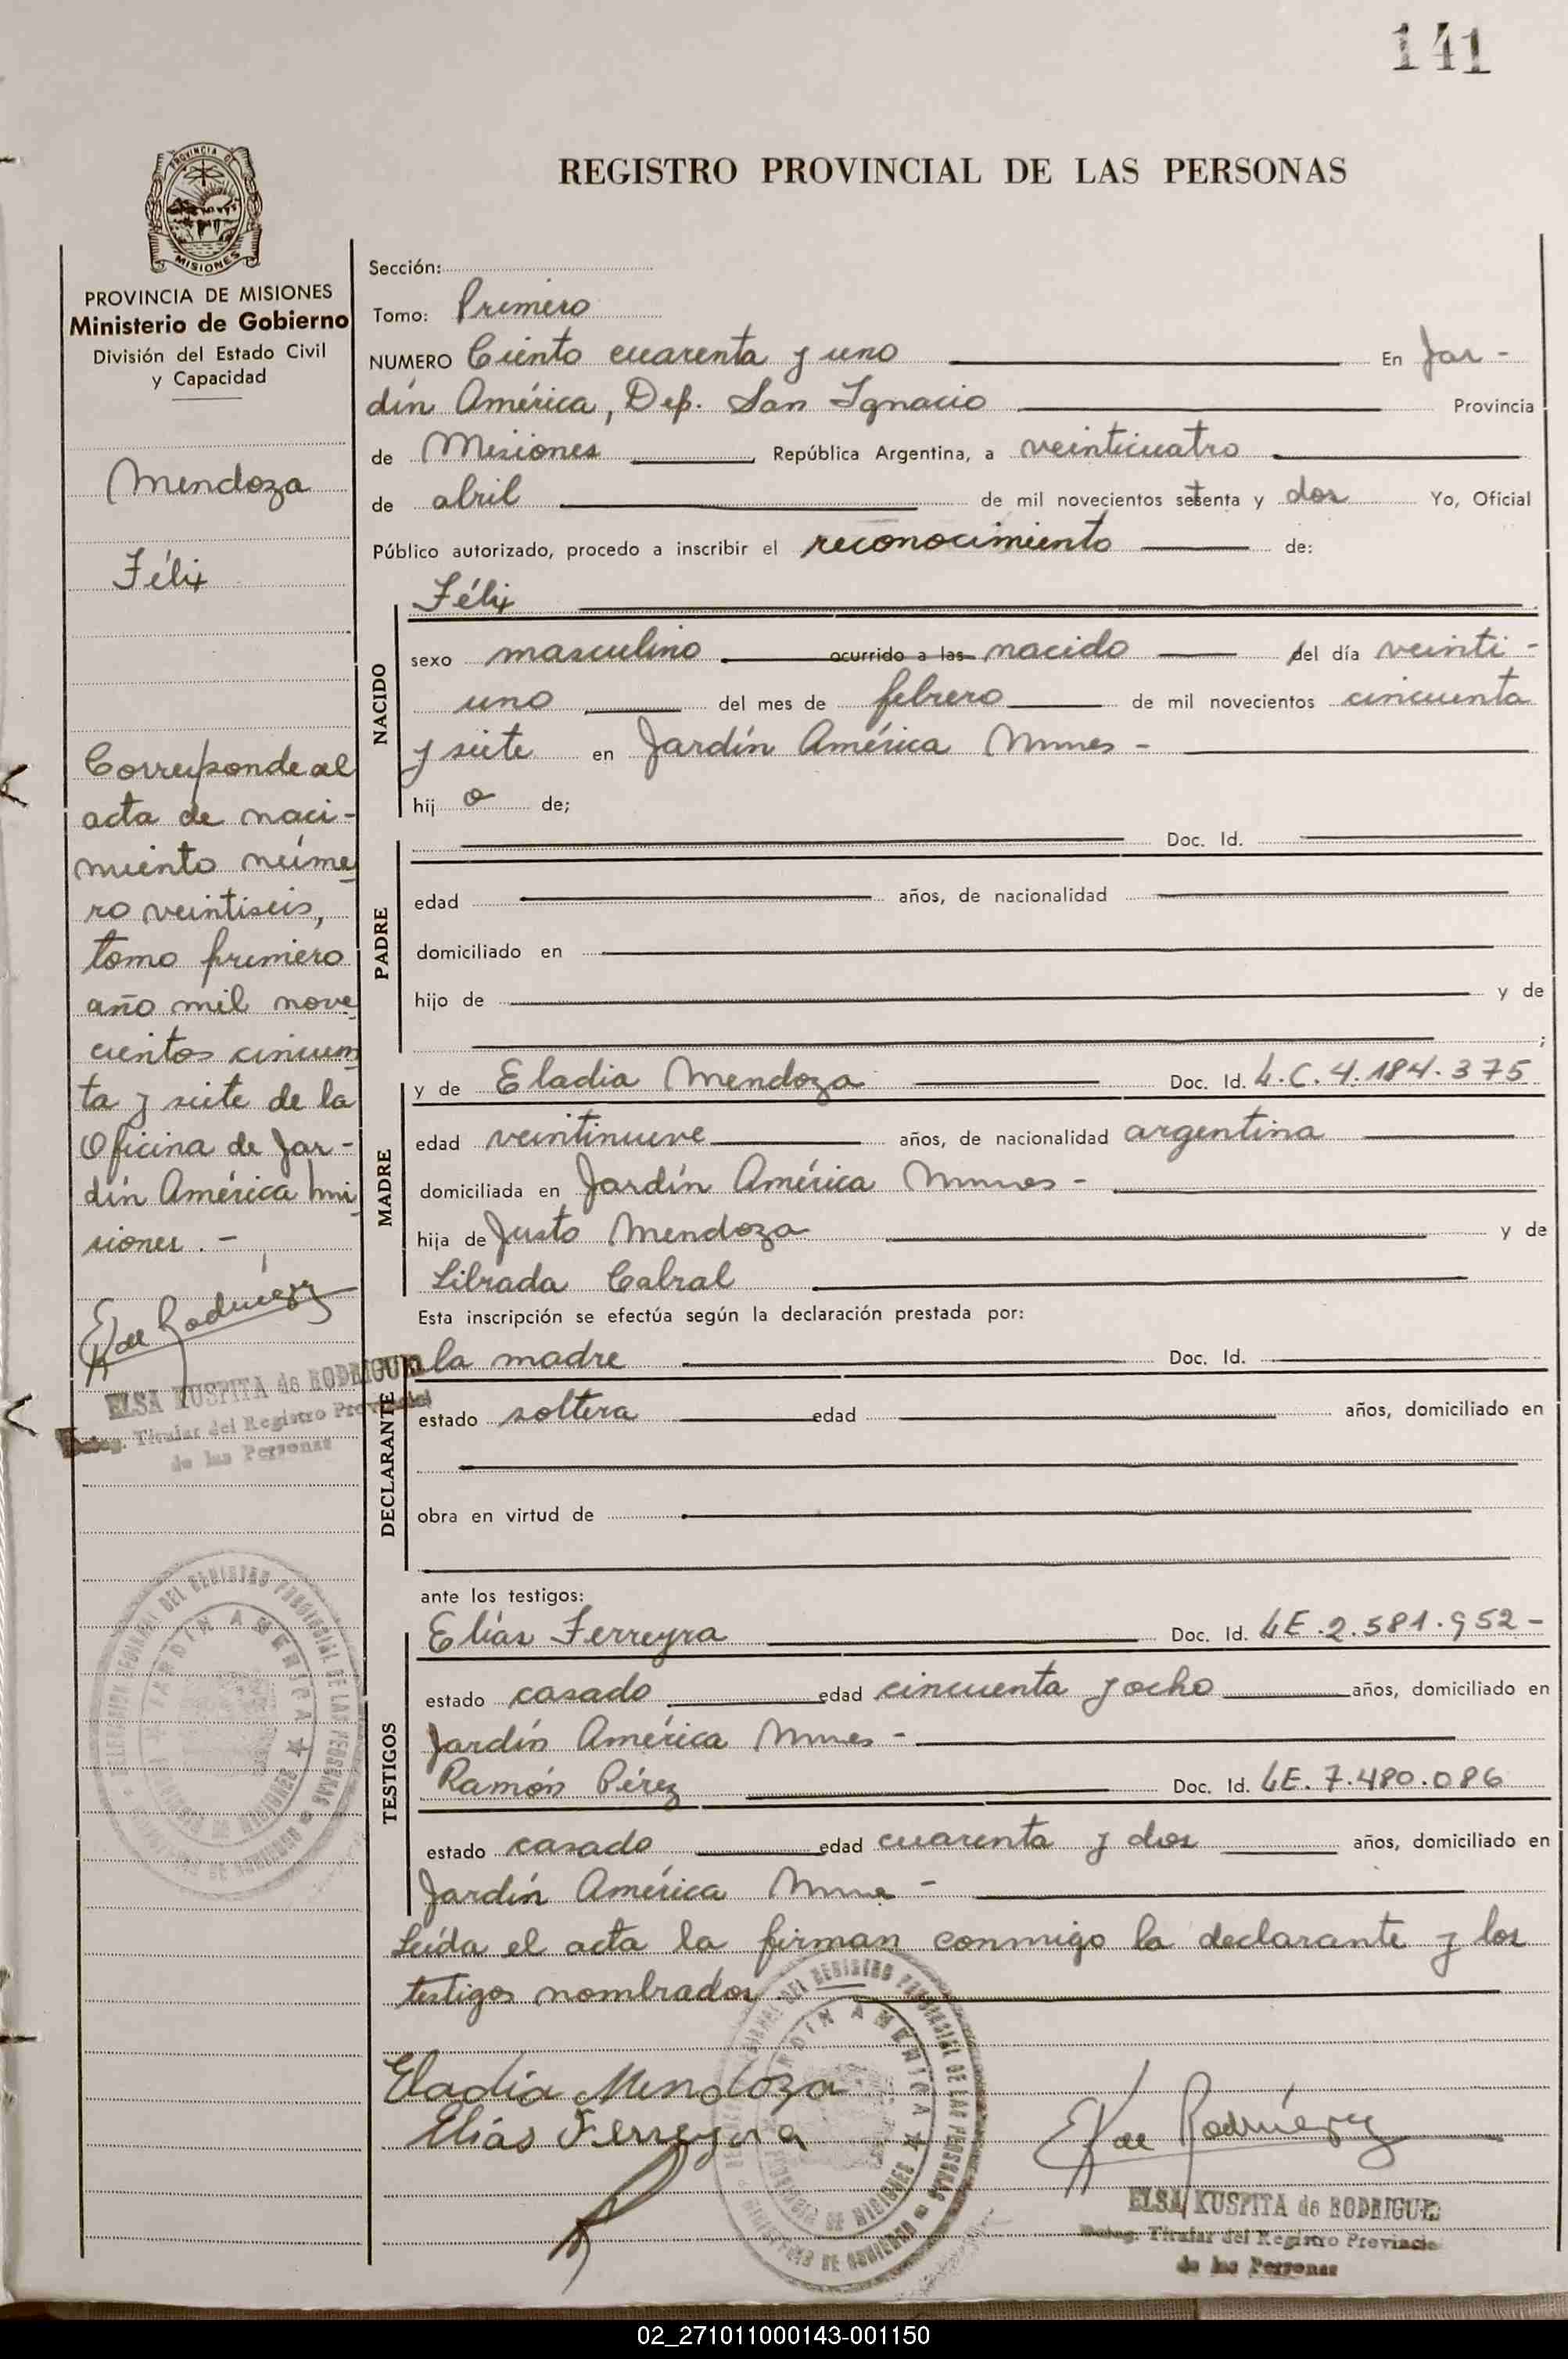 141
REGISTRO PROVINCIAL DE LAS PERSONAS
PROVINCIA DE
MISIONES
PROVINCIA DE MISIONES
Ministerio de Gobierno
División del Estado Civil
y Capacidad
Mendoza
Félix
Corresponde al
acta de naci-
miento núme
ro veintiseis,
tomo primero
año mil nove
cientos cincuen
ta y siete de la
Oficina de Jar-
dín América Mi
siones.-
E K de Rodríguez
ELSA KUSPITA de RODRIGUEZ
Deleg. Titular del Registro Provincial
de las Personas
Sección:
Tomo: Primero
NUMERO Ciento cuarenta y uno En Jar-
dín América, Dep. San Ignacio Provincia
de Misiones República Argentina, a veinticuatro
de abril de mil novecientos setenta y dos Yo, Oficial
Público autorizado, procedo a inscribir el reconocimiento de:
NACIDO
Félix
sexo masculino ocurrido a las nacido del día veinti-
uno del mes de febrero de mil novecientos cincuenta
y siete en Jardín América Mnes-
hij o de;
PADRE
Doc. Id.
edad años, de nacionalidad
domiciliado en
hijo de y de
;
MADRE
y de Eladia Mendoza Doc. Id. L.C. 4.184.375
edad veintinueve años, de nacionalidad argentina
domiciliada en Jardín América Mnes-
hija de Justo Mendoza y de
Librada Cabral
Esta inscripción se efectúa según la declaración prestada por:
DECLARANTE
la madre Doc. Id.
estado soltera edad años, domiciliado en
obra en virtud de
ante los testigos:
TESTIGOS
Elías Ferreyra Doc. Id. LE.2.581.952-
estado casado edad cincuenta y ocho años, domiciliado en
Jardín América Mnes-
Ramón Pérez Doc. Id. LE. 7.480.086
estado casado edad cuarenta y dos años, domiciliado en
Jardín América Mnes-
Leída el acta la firman conmigo la declarante y los
testigos nombrados.
Eladia Mendoza
Elías Ferreyra
E K de Rodríguez
ELSA KUSPITA de RODRIGUEZ
Deleg. Titular del Registro Provincial
de las Personas
DEL REGISTRO PROVINCIAL DE LAS PERSONAS
JARDIN AMERICA
PROVINCIA DE MISIONES
MINISTERIO DE GOBIERNO
02_271011000143-001150